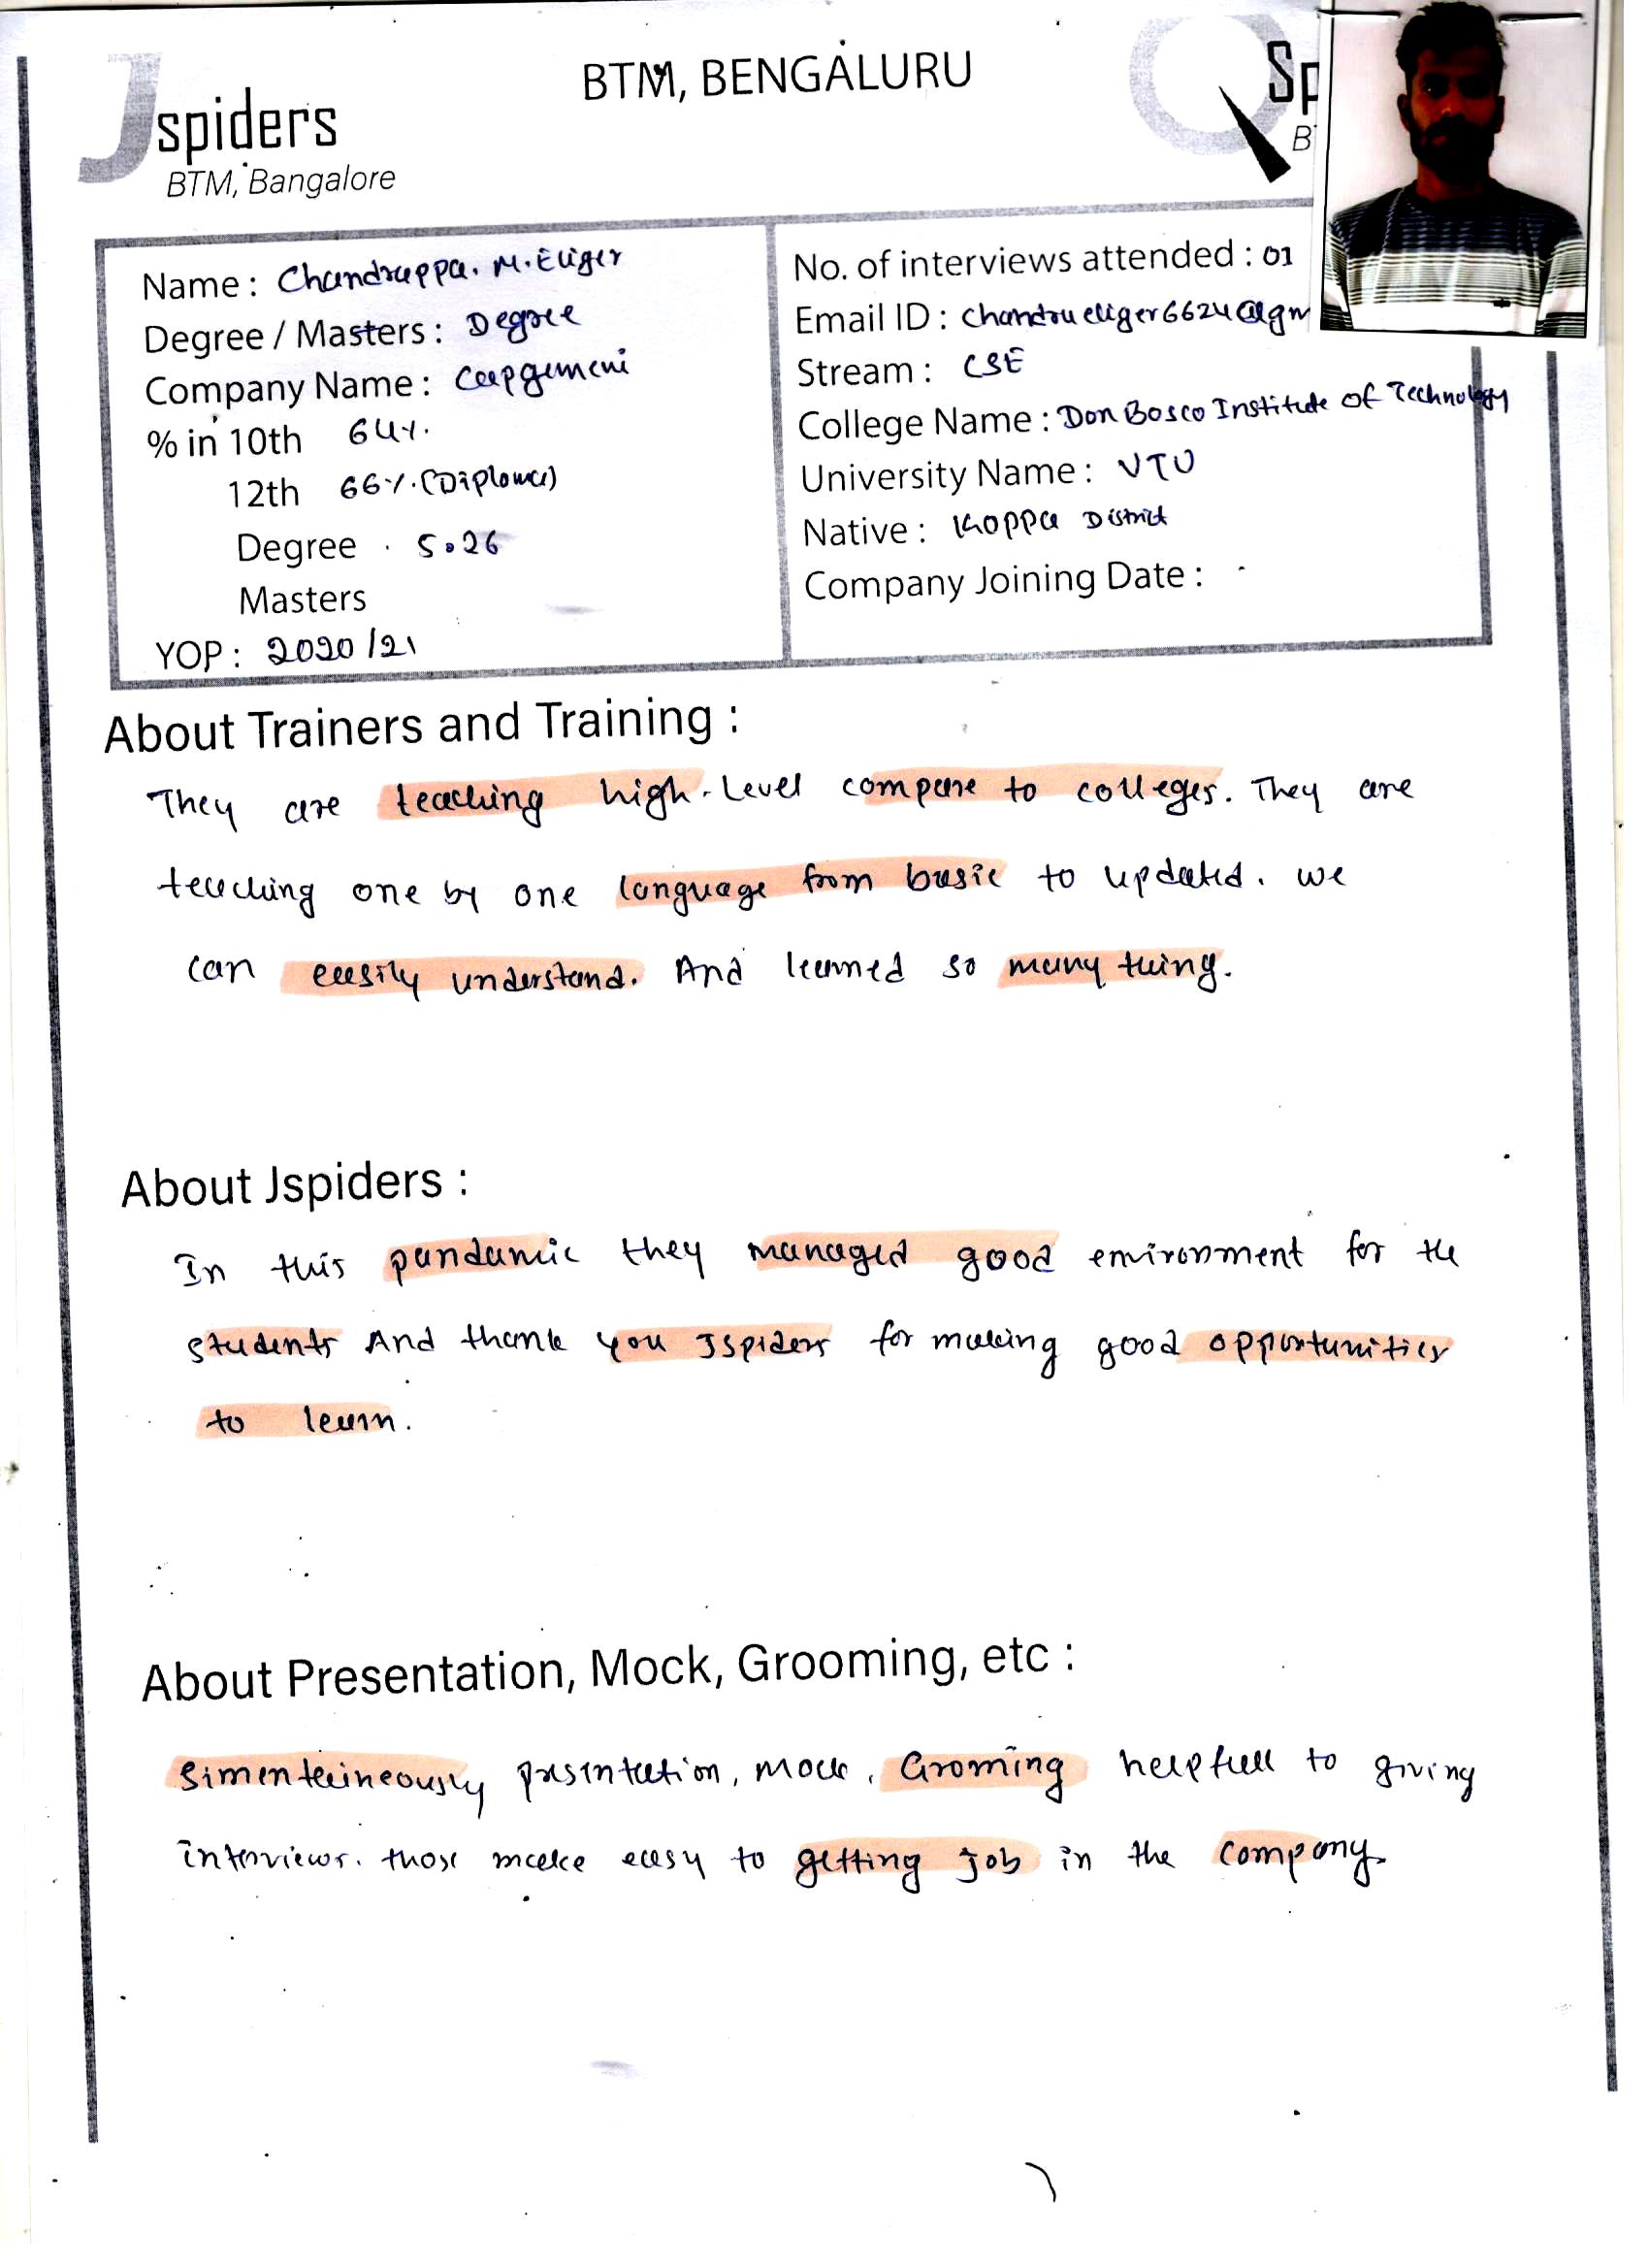 BTM, BENGALURU
Jspiders
BTM, Bangalore
Sp
B
Name : Chandrappa. M. Eliger
Degree / Masters : Degree
Company Name : Capgemeni
% in 10th 64%.
12th 66%. (Diploma)
Degree 5.26
Masters
YOP : 2020/21
No. of interviews attended : 01
Email ID : chandrueliger6624@gm
Stream : CSE
College Name : Don Bosco Institute of Technology
University Name : VTU
Native : Koppa District
Company Joining Date : -
About Trainers and Training :
They are teaching high-Level compare to colleges. They are
teaching one by one language from basic to updated. We
can easily understand. And learned so many thing.
About Jspiders :
In this pandamic they managed good environment for the
students And thank you Jspiders for making good opportunities
to learn.
About Presentation, Mock, Grooming, etc :
Simentaineously presintation, mock, Groming helpfull to giving
interviews. those make easy to getting job in the company.